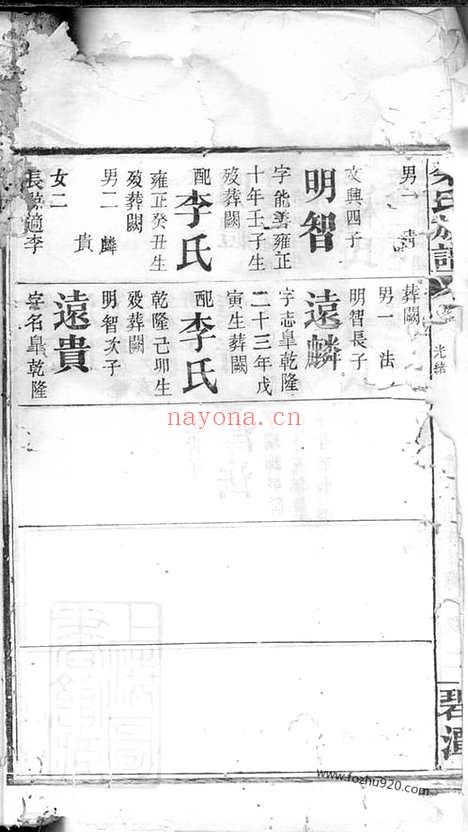 氏族譜
光緒
碧
男一
文興四子
明智
字能善雍正
十年壬子生
歿葬闕
配李氏
雍正癸丑生
歿葬闕
男二 麟
貴
女二
長 適李
葬闕
男一 法
明智長子
遠麟
字志皐乾隆
二十三年戊
寅生葬闕
配李氏
乾隆己卯生
歿葬闕
明智次子
遠貴
字名皐乾隆
nayona.cn
www.fozhu920.com